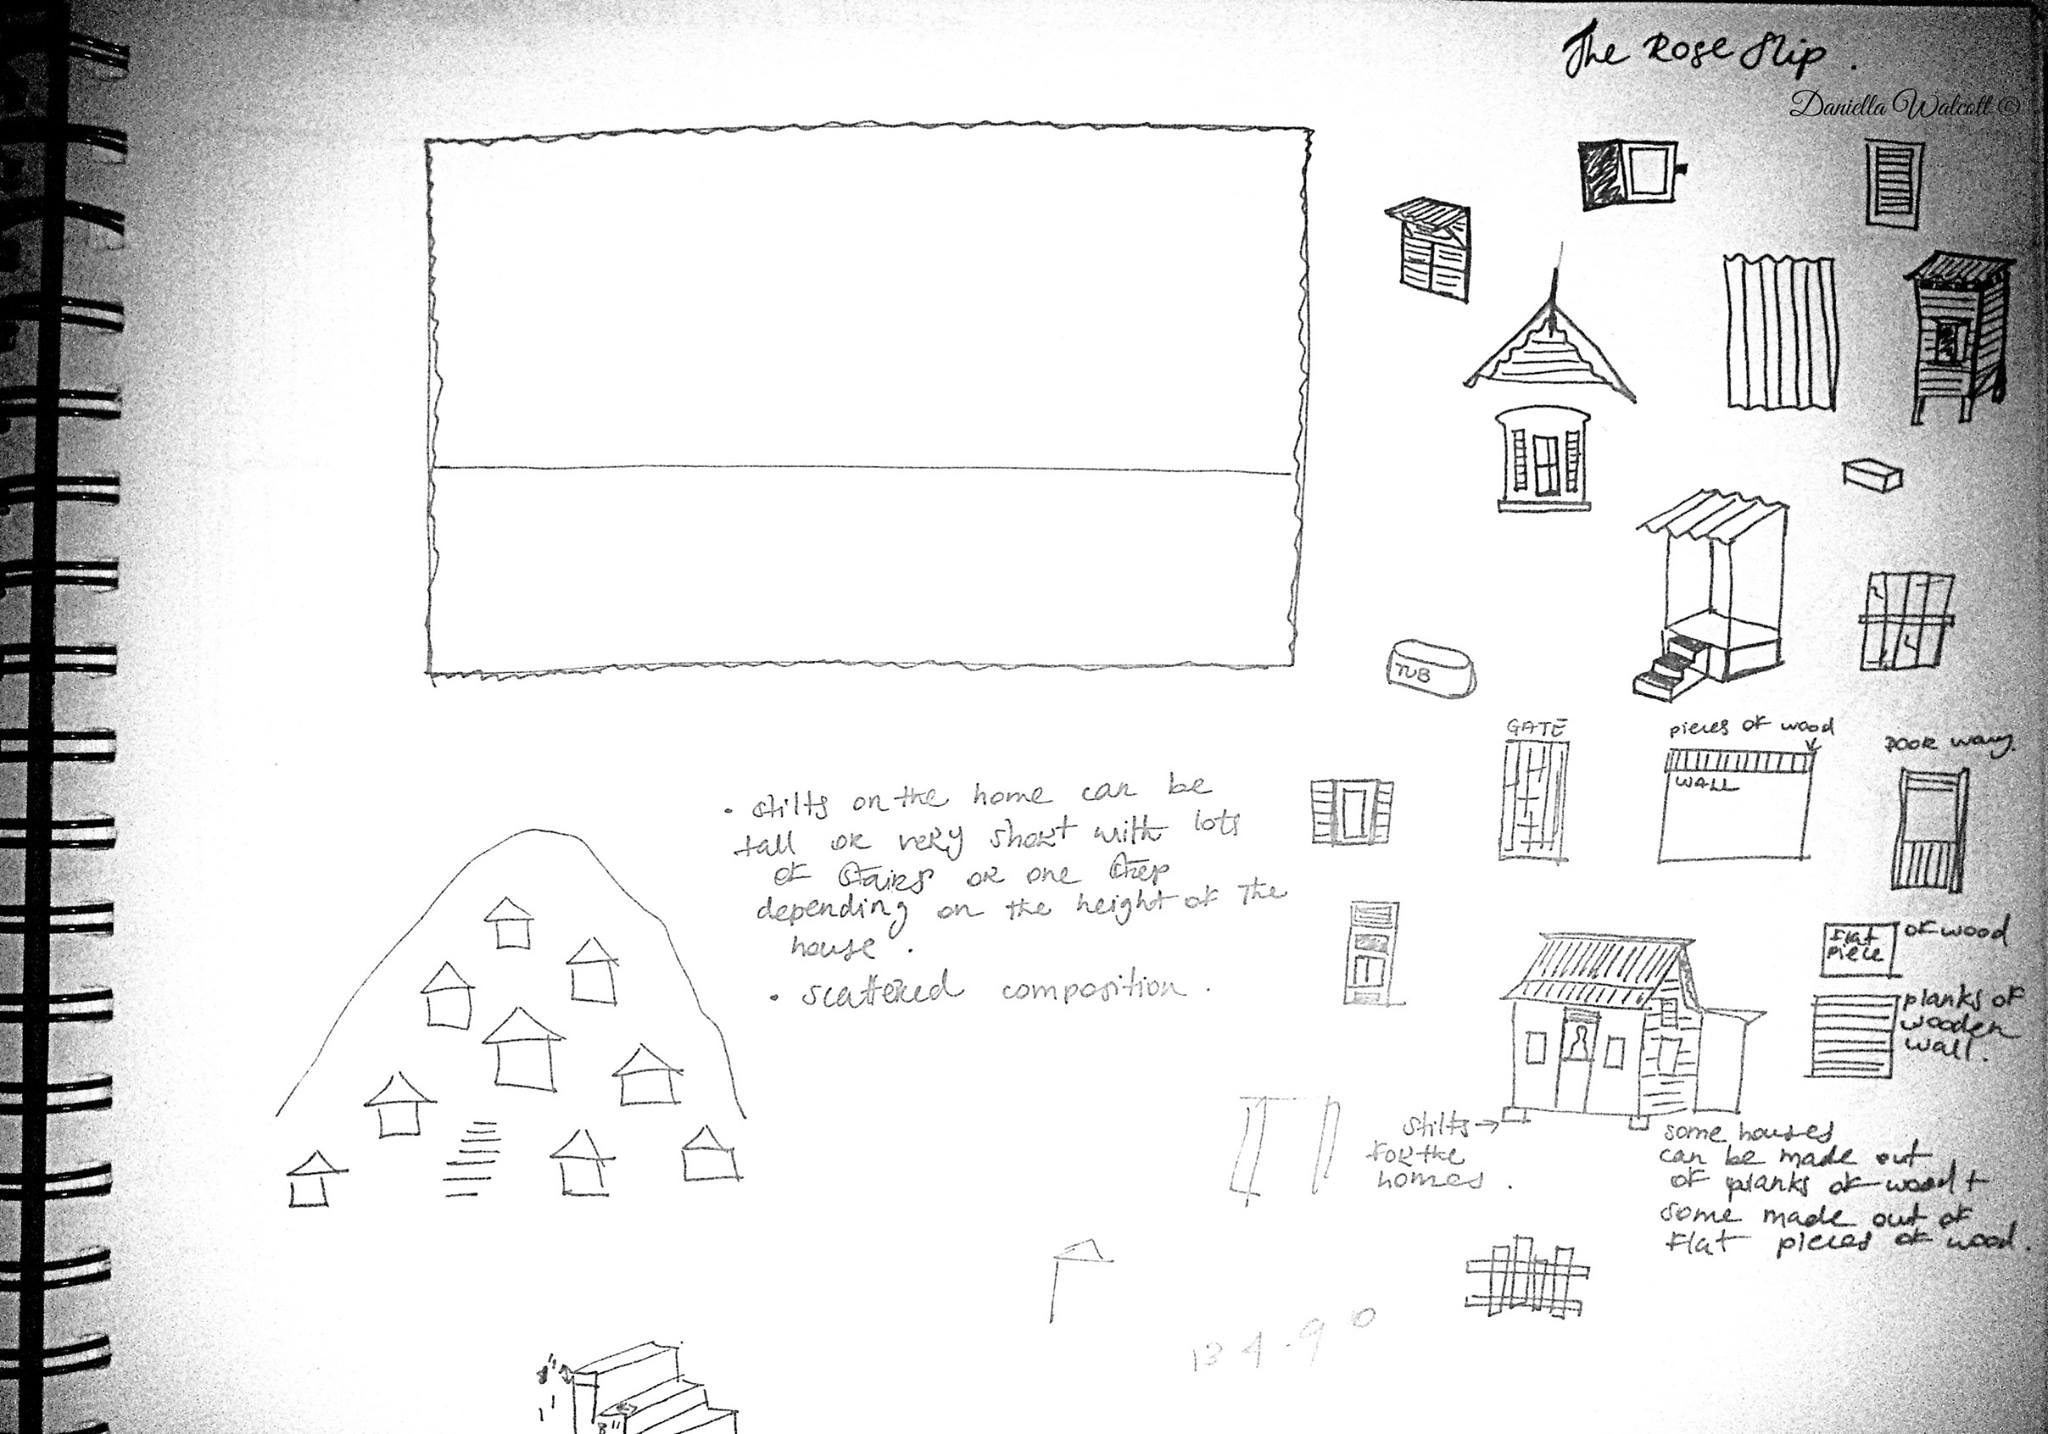 The Rose Slip.
Daniella Walcott ©
TUB
GATE
pieces of wood
WALL
Door way
• stilts on the home can be
tall or very short with lots
of stairs or one step
depending on the height of the
house.
• scattered composition.
flat
piece
of wood
planks of
wooden
wall.
stilts →
for the
homes.
some houses
can be made out
of planks of wood +
some made out of
flat pieces of wood.
8"